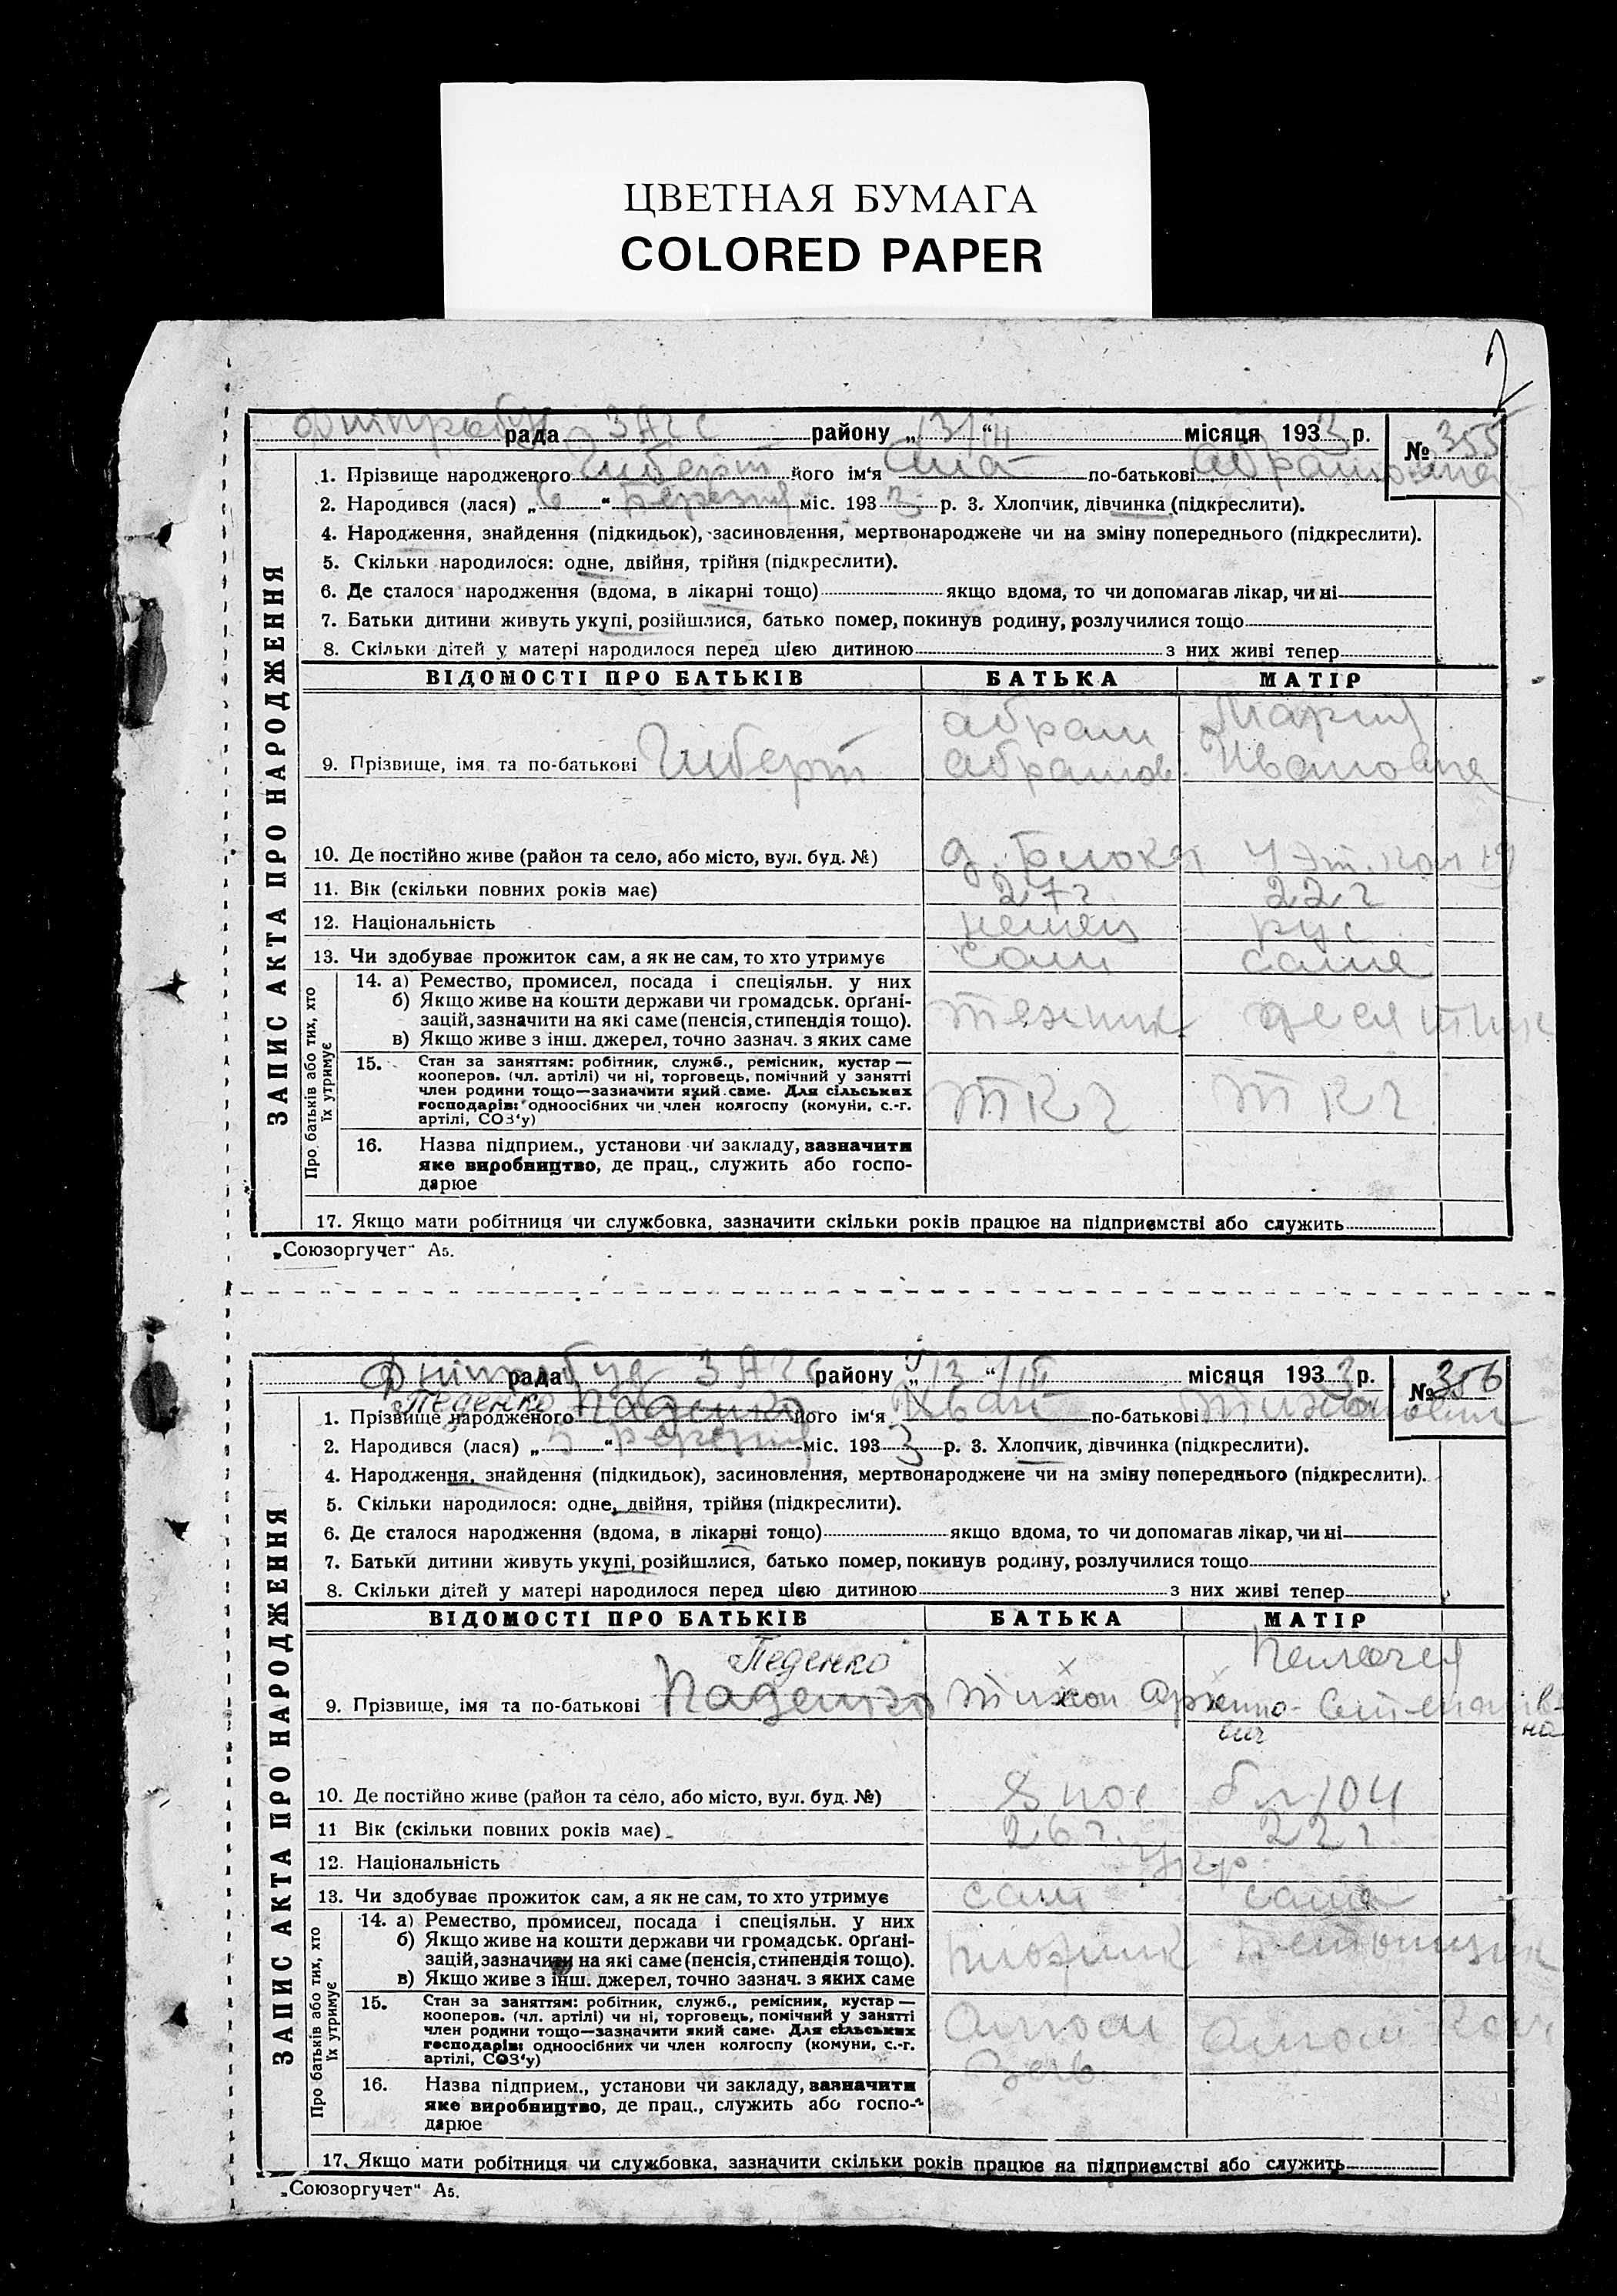 ЦВЕТНАЯ БУМАГА
COLORED PAPER
2
рада ЗАГС району „13/III“ місяця 1933 р. № 355
1. Прізвище народженого Гиберт його ім‘я по-батькові Абрамовна
2. Народився (лася) „6“ березня міс. 1933 р. 3. Хлопчик, дівчинка (підкреслити).
4. Народження, знайдення (підкидьок), засиновлення, мертвонароджене чи на зміну попереднього (підкреслити).
5. Скільки народилося: одне, двійня, трійня (підкреслити).
6. Де сталося народження (вдома, в лікарні тощо) якщо вдома, то чи допомагав лікар, чи ні
7. Батьки дитини живуть укупі, розійшлися, батько помер, покинув родину, розлучилися тощо
8. Скільки дітей у матері народилося перед цією дитиною з них живі тепер
ЗАПИС АКТА ПРО НАРОДЖЕННЯ
ВІДОМОСТІ ПРО БАТЬКІВ БАТЬКА МАТІР
9. Прізвище, імя та по-батькові Гиберт Абрам Абрамов. Мария Ивановна
10. Де постійно живе (район та село, або місто, вул. буд. №)
11. Вік (скільки повних років має) 27 г 22 г
12. Національність немец рус
13. Чи здобуває прожиток сам, а як не сам, то хто утримує сам сама
Про батьків або тих, хто їх утримує
14. а) Ремество, промисел, посада і спеціяльн. у них
б) Якщо живе на кошти держави чи громадськ. орґані-
зацій, зазначити на які саме (пенсія, стипендія тощо).
в) Якщо живе з інш. джерел, точно зазнач. з яких саме
техник десятник
15. Стан за заняттям: робітник, служб., ремісник, кустар —
кооперов. (чл. артілі) чи ні, торговець, помічний у занятті
член родини тощо—зазначити який саме. Для сільських
господарів: одноосібних чи член колгоспу (комуни, с.-г.
артілі, СОЗ‘у)
16. Назва підприєм., установи чи закладу, зазначити
яке виробництво, де прац., служить або госпо-
дарює
17. Якщо мати робітниця чи службовка, зазначити скільки років працює на підприємстві або служить
„Союзоргучет“ А5.
Дніпробуд рада ЗАГС району „13“/III місяця 1933 р. № 356
Педенко
1. Прізвище народженого Паденко його ім‘я Іван по-батькові Тихонович
2. Народився (лася) „5“ березня міс. 1933 р. 3. Хлопчик, дівчинка (підкреслити).
4. Народження, знайдення (підкидьок), засиновлення, мертвонароджене чи на зміну попереднього (підкреслити).
5. Скільки народилося: одне, двійня, трійня (підкреслити).
6. Де сталося народження (вдома, в лікарні тощо) якщо вдома, то чи допомагав лікар, чи ні
7. Батьки дитини живуть укупі, розійшлися, батько помер, покинув родину, розлучилися тощо
8. Скільки дітей у матері народилося перед цією дитиною з них живі тепер
ЗАПИС АКТА ПРО НАРОДЖЕННЯ
ВІДОМОСТІ ПРО БАТЬКІВ БАТЬКА МАТІР
Педенко
9. Прізвище, імя та по-батькові Паденко Тихон Пелагея
10. Де постійно живе (район та село, або місто, вул. буд. №) 8 пос бл 104
11 Вік (скільки повних років має) 26 г. 22 г
12. Національність Укр.
13. Чи здобуває прожиток сам, а як не сам, то хто утримує сам сама
Про батьків або тих, хто їх утримує
14. а) Ремество, промисел, посада і спеціяльн. у них
б) Якщо живе на кошти держави чи громадськ. орґані-
зацій, зазначити на які саме (пенсія, стипендія тощо).
в) Якщо живе з інш. джерел, точно зазнач. з яких саме
15. Стан за заняттям: робітник, служб., ремісник, кустар —
кооперов. (чл. артілі) чи ні, торговець, помічний у занятті
член родини тощо—зазначити який саме. Для сільських
господарів: одноосібних чи член колгоспу (комуни, с.-г.
артілі, СОЗ‘у)
16. Назва підприєм., установи чи закладу, зазначити
яке виробництво, де прац., служить або госпо-
дарює
17. Якщо мати робітниця чи службовка, зазначити скільки років працює на підприємстві або служить
„Союзоргучет“ А5.